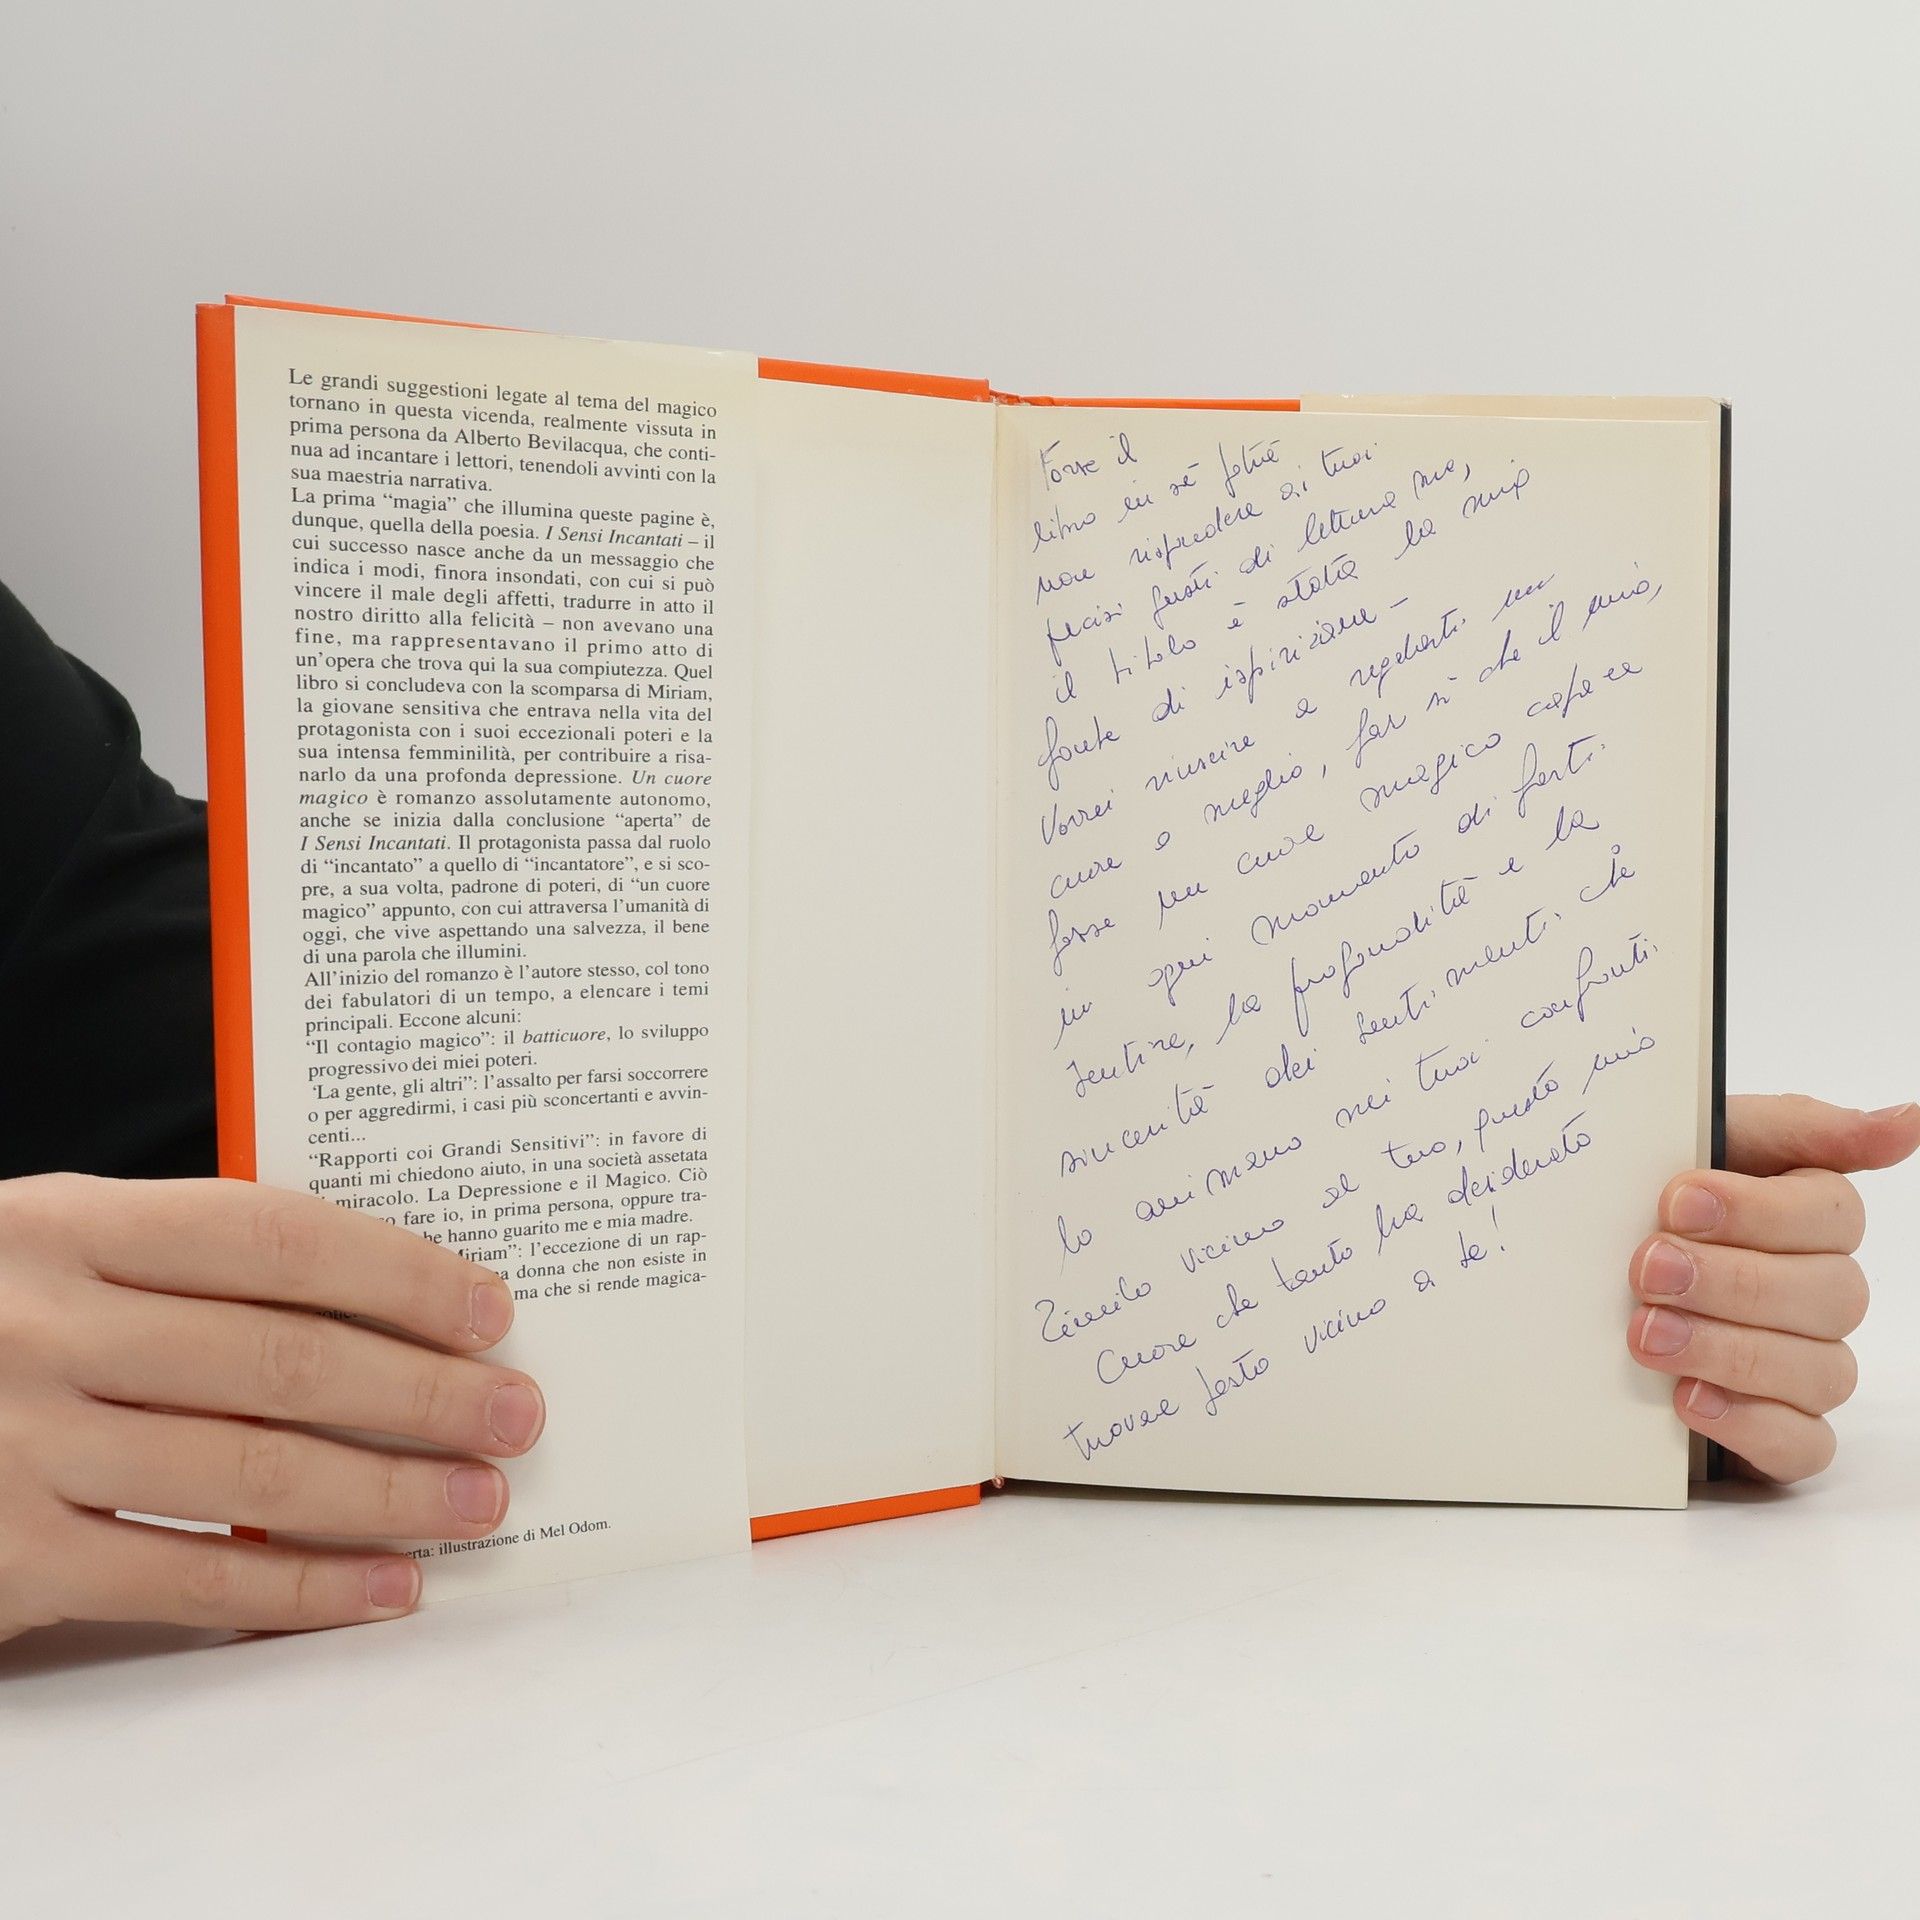 Le grandi suggestioni legate al tema del magico
tornano in questa vicenda, realmente vissuta in
prima persona da Alberto Bevilacqua, che conti-
nua ad incantare i lettori, tenendoli avvinti con la
sua maestria narrativa.
La prima “magia” che illumina queste pagine è,
dunque, quella della poesia. I Sensi Incantati – il
cui successo nasce anche da un messaggio che
indica i modi, finora insondati, con cui si può
vincere il male degli affetti, tradurre in atto il
nostro diritto alla felicità – non avevano una
fine, ma rappresentavano il primo atto di
un’opera che trova qui la sua compiutezza. Quel
libro si concludeva con la scomparsa di Miriam,
la giovane sensitiva che entrava nella vita del
protagonista con i suoi eccezionali poteri e la
sua intensa femminilità, per contribuire a risa-
narlo da una profonda depressione. Un cuore
magico è romanzo assolutamente autonomo,
anche se inizia dalla conclusione “aperta” de
I Sensi Incantati. Il protagonista passa dal ruolo
di “incantato” a quello di “incantatore”, e si sco-
pre, a sua volta, padrone di poteri, di “un cuore
magico” appunto, con cui attraversa l’umanità di
oggi, che vive aspettando una salvezza, il bene
di una parola che illumini.
All’inizio del romanzo è l’autore stesso, col tono
dei fabulatori di un tempo, a elencare i temi
principali. Eccone alcuni:
“Il contagio magico”: il batticuore, lo sviluppo
progressivo dei miei poteri.
‘La gente, gli altri”: l’assalto per farsi soccorrere
o per aggredirmi, i casi più sconcertanti e avvin-
centi...
“Rapporti coi Grandi Sensitivi”: in favore di
quanti mi chiedono aiuto, in una società assetata
miracolo. La Depressione e il Magico. Ciò
fare io, in prima persona, oppure tra-
he hanno guarito me e mia madre.
Miriam”: l’eccezione di un rap-
donna che non esiste in
ma che si rende magica-
erta: illustrazione di Mel Odom.
Forse il
libro in sé potrà
non rispondere ai tuoi
precisi gusti di lettura ma,
il titolo è stata la mia
fonte di ispirazione –
Vorrei riuscire a regalarti un
cuore o meglio, far sì che il mio,
fosse un cuore magico capace
in ogni momento di farti
sentire, la profondità e la
sincerità dei sentimenti che
lo animano nei tuoi confronti.
Tienilo vicino al tuo, questo mio
Cuore che tanto ha desiderato
trovare posto vicino a te!